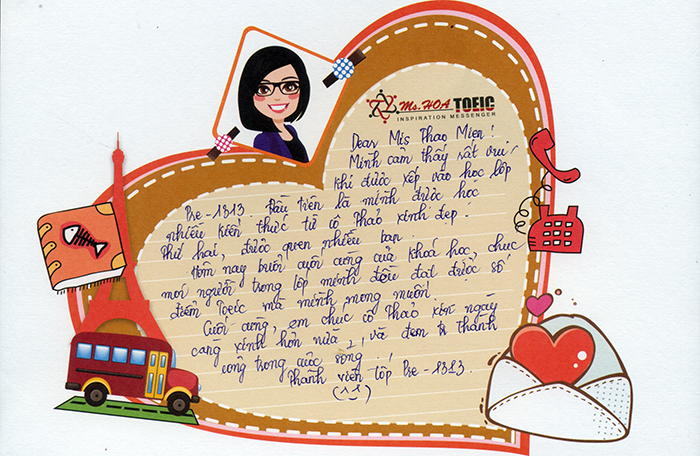 Ms. HOA TOEIC
INSPIRATION MESSENGER
Dear Mis Thao Mien!
Mình cảm thấy rất vui
khi được xếp vào học lớp
Pre-1313. Đầu tiên là mình được học
nhiều kiến thức từ cô Thảo xinh đẹp.
Thứ hai, được quen nhiều bạn.
Hôm nay buổi cuối cùng của khoá học, chúc
mọi người trong lớp mình đều đạt được số
điểm Toeic mà mình mong muốn.
Cuối cùng, em chúc cô Thảo ngày
càng xinh hơn nữa, và thành
công trong cuộc sống.
Thành viên lớp Pre-1313.
(^^)